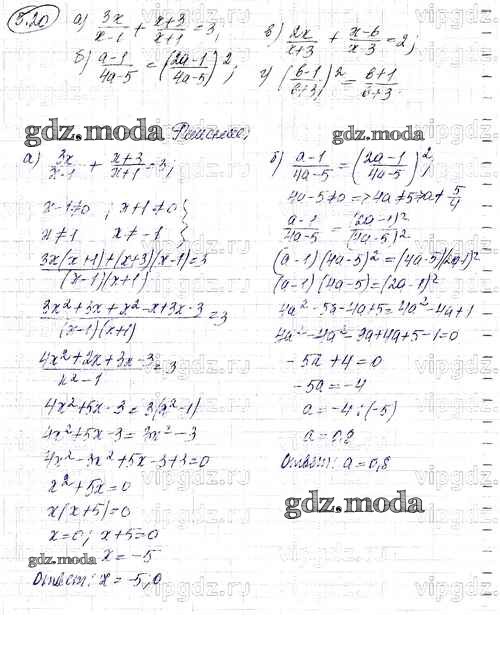 5.20 а) 3x/(x-1) + (x+3)/(x+1) = 3; в) 2x/(x+3) + (x-6)/(x-3) = 2;
б) (a-1)/(4a-5) = ((2a-1)/(4a-5))²; г) ((в-1)/(в+3))² = (в+1)/(в+3).
gdz.moda Решение;
gdz.moda
а) 3x/(x-1) + (x+3)/(x+1) = 3;
x-1≠0 ; x+1≠0 }
x≠1 x≠-1 }
(3x(x+1)+(x+3)(x-1))/((x-1)(x+1)) = 3
(3x²+3x+x²-x+3x-3)/((x-1)(x+1)) = 3
(4x²+2x+3x-3)/(x²-1) = 3
4x²+5x-3=3(x²-1)
4x²+5x-3=3x²-3
4x²-3x²+5x-3+3=0
x²+5x=0
x(x+5)=0
x=0; x+5=0
gdz.moda x=-5
Ответ: x=-5; 0
б) (a-1)/(4a-5) = ((2a-1)/(4a-5))²;
4a-5≠0 => 4a≠5 => a≠ 5/4
(a-1)/(4a-5) = (2a-1)²/(4a-5)²
(a-1)(4a-5)²=(4a-5)(2a-1)²
(a-1)(4a-5)=(2a-1)²
4a²-5a-4a+5=4a²-4a+1
4a²-4a²-9a+4a+5-1=0
-5a+4=0
-5a=-4
a=-4:(-5)
a=0,8
Ответ: a=0,8
gdz.moda
vipgdz.ru